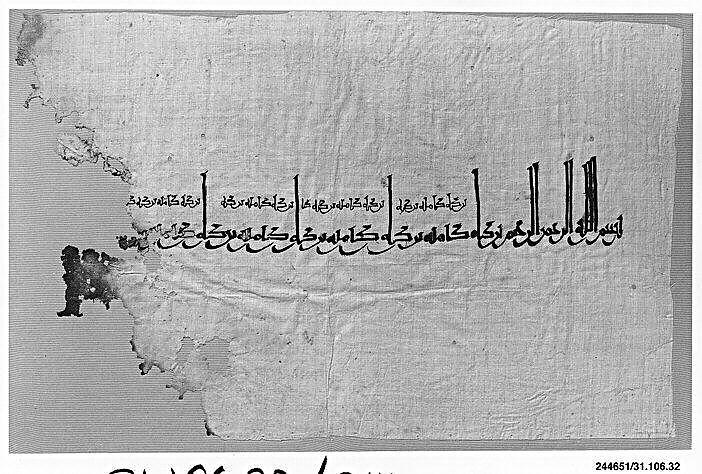 بركة كاملة بركة كاملة بركة كاملة بركة كاملة
بسم الله الرحمن الرحيم بركة كاملة بركة كاملة بركة كاملة بركة كاملة
244651/31.106.32